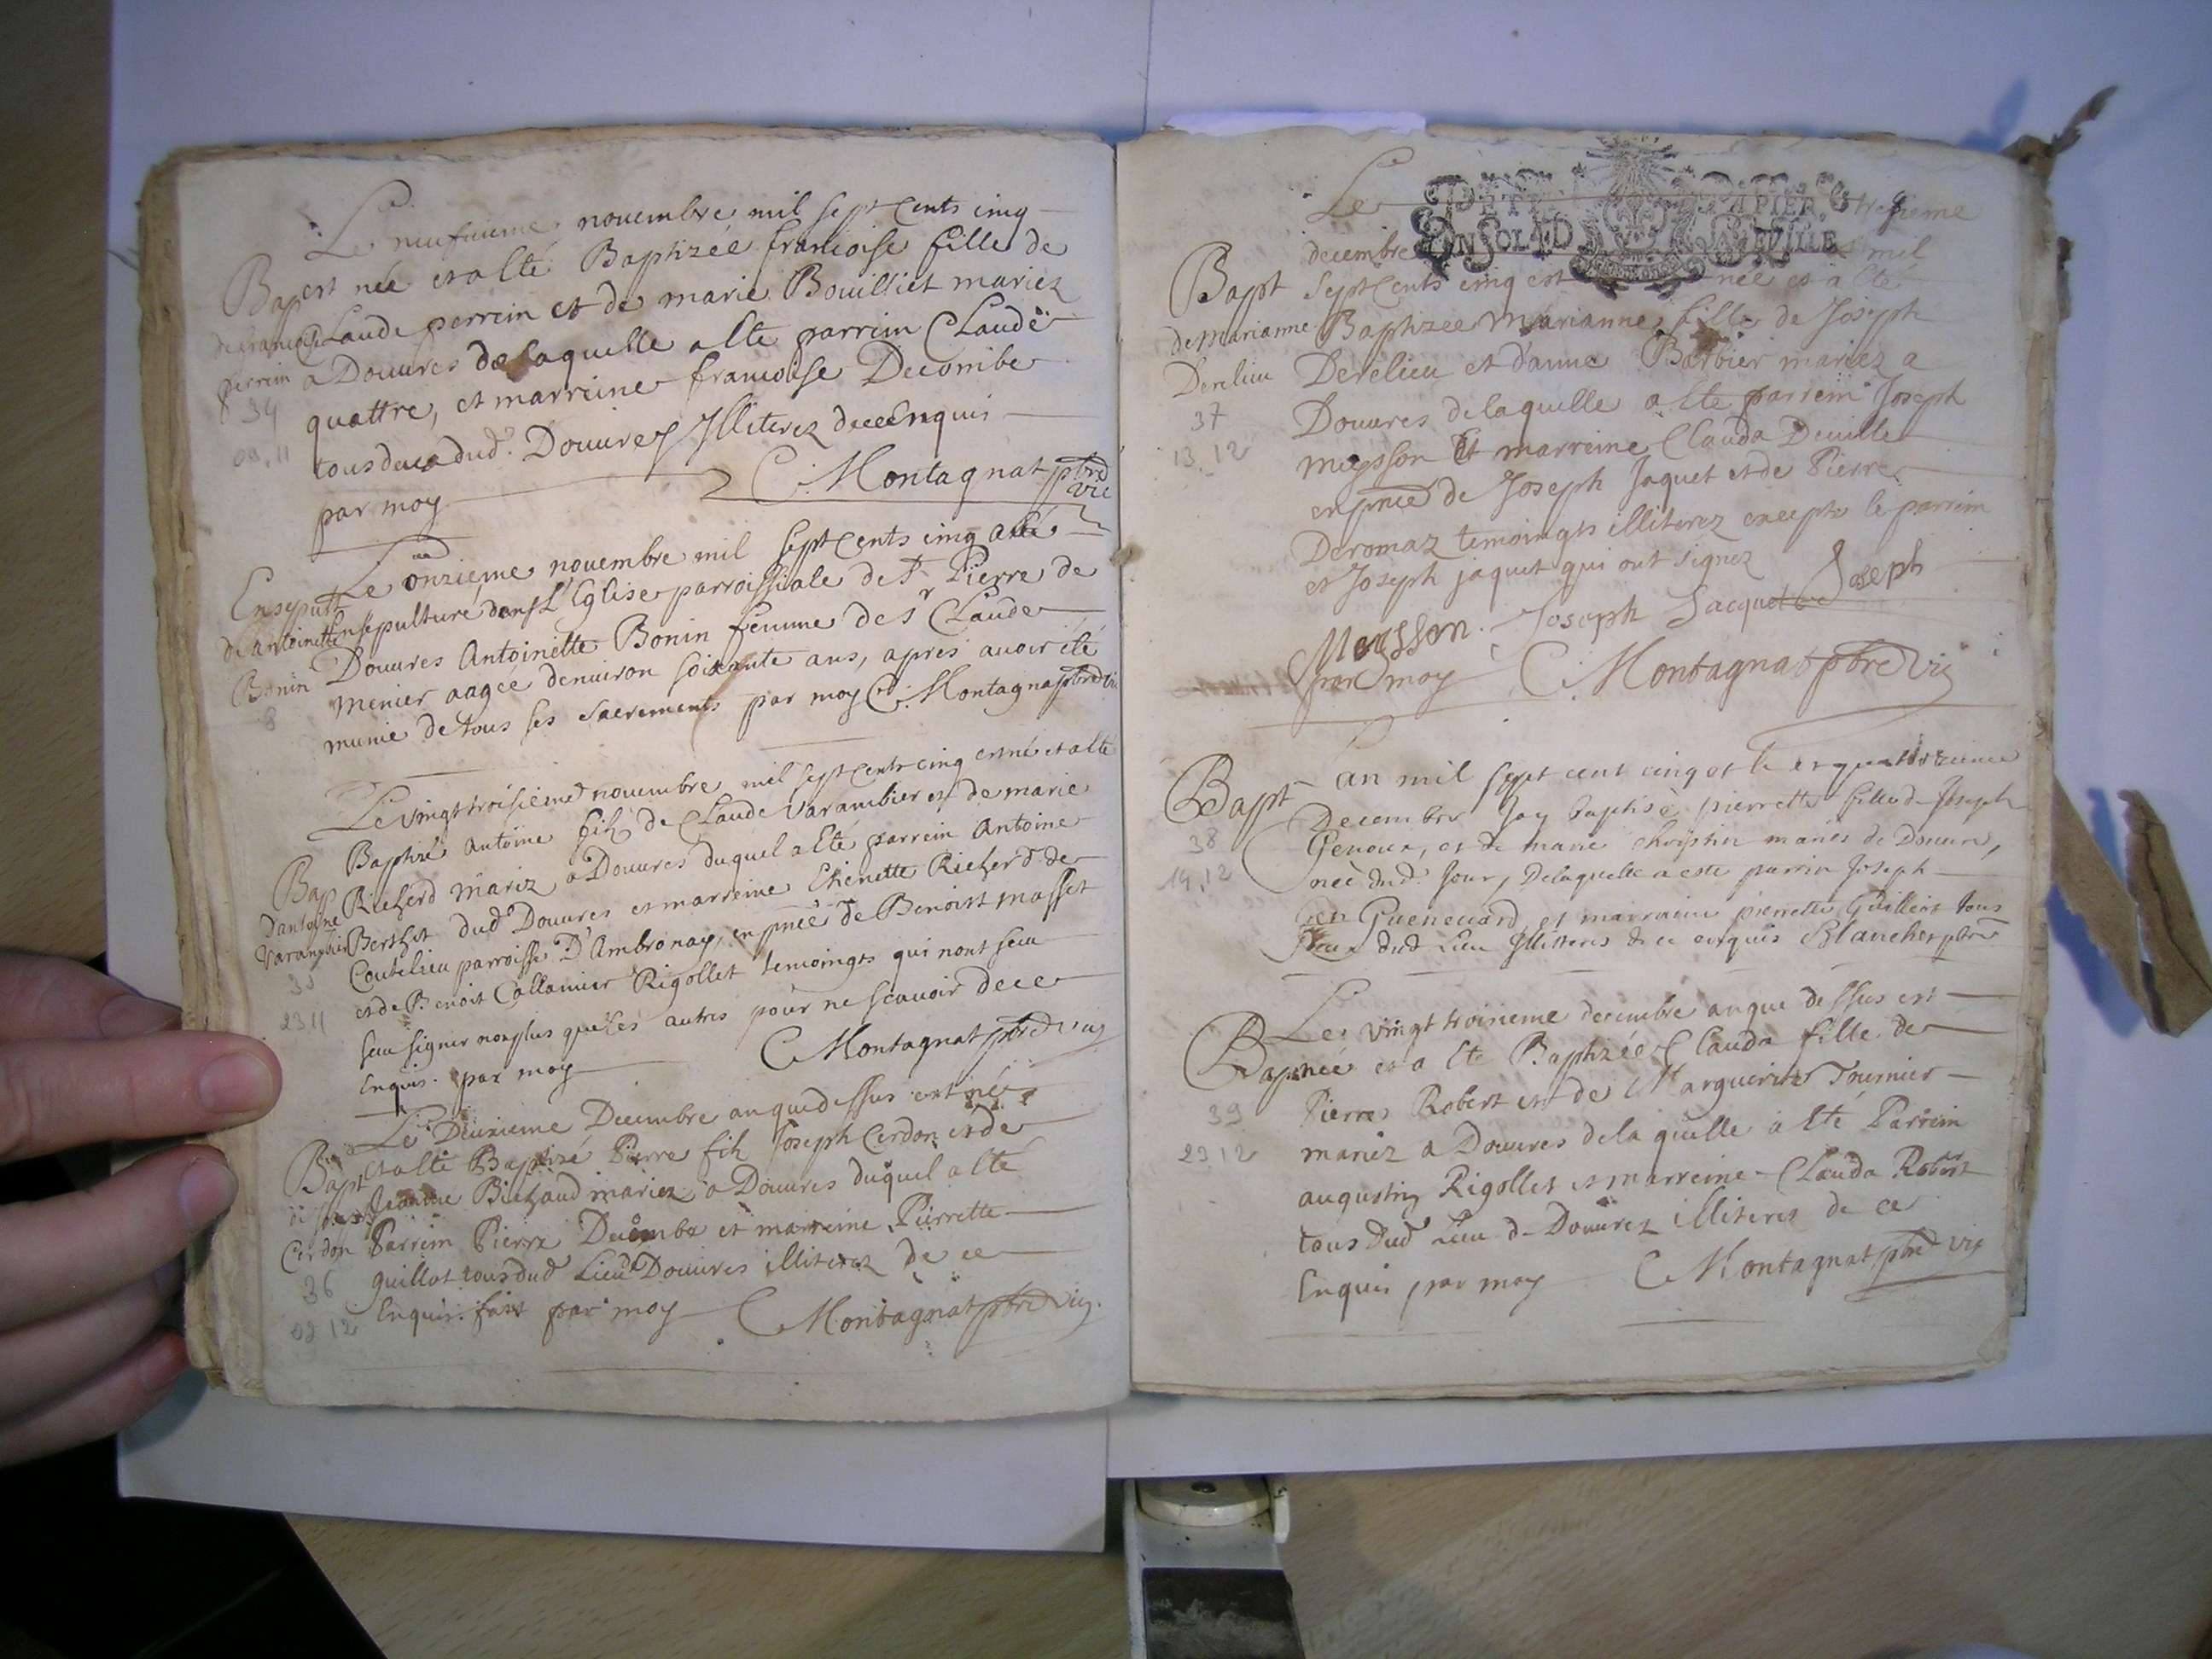 Le neufuieme nouembre mil sept Cents cinq
Bap est née et a esté Baptizée francoise fille de
de francoise Claude perrein et de marie Bouilliet mariez
perrein a Douures de laquelle a esté parrein Claude
34 quattre, et marreine francoise Decombe
09.11 tous deux dud. Douures Illiterez de ce Enquis
par moy C. Montagnat pbre vic
Le onzieme nouembre mil sept Cents cinq a esté
Ensepult Ensepulturé dans L'Eglise parroissiale de St Pierre de
de antoinette Douures Antoinette Bonin femme de Sr Claude
Bonin menier aagée denuiron soixante ans, apres auoir eté
8 munie de tous ses sacrements par moy C. Montagnat pbre vic
Le vingt troisieme nouembre mil sept Cents cinq est né et a esté
Baptizé antoine fils de Claude Varambier et de marie
Bap Richerd mariz a Douures duquel a esté parrein antoine
d'antoine Berthet dud Douures et marreine Etienette Richerd de
Varambier Coutelieu parroisse D'Ambronay, en pnce de Benoist masset
35 et de Benoit Callamier Rigollet temoingts qui n'ont sceu
23 11 sceu signer non plus que les autres pour ne scauoir de ce
Enquis. par moy C Montagnat pbre vic
Le Deuxieme Decembre an que dessus est né
Bapt et a esté Baptizé Pierre fils Joseph Cerdon et de
Jeanne Bichaud mariez a Douures duquel a esté
Cerdon Parrein Pierre Decombe et marreine Pierrette
36 guillot tous dud Lieu Douures illiterez de ce
02 12 Enquis. fait par moy C Montagnat pbre vic.
PETIT PAPIER
UN SOL LA FEUILLE
Le treizieme
decembre mil
Bapt Sept Cents cinq est née et a esté
de Marianne Baptizee Marianne fille de Joseph
Derelieu Derelieu et d'anne Barbier mariez a
37 Douures de laquelle a esté parrein Joseph
13.12 meysson Et marreine Clauda Deuille
en pnce de Joseph Jaquet et de Pierre
Deromaz temoingts illiterez excepte le parrein
et Joseph jaquet qui ont signez
Joseph Jacquet Joseph
Meysson.
par moy C Montagnat pbre vic
Bapt L'an mil sept cent cinq et le quatorzieme
Decembre Jay baptisé pierrette fille de Joseph
38 Genoux, et de marie christin mariés de Douure,
14.12 née dud. Jour, Delaquelle a esté parrin Joseph
Guenouard et marraine pierrette Guilliert tous
deux dud Lieu Illitteres de ce enquis Blanchet pbre
Le vingt troisieme decembre an que dessus est
Bap née et a esté Baptizée Clauda fille de
39 Pierre Robert et de Marguerite Tournier
23 12 mariez a Douures de la quelle a esté Parrein
augustin Rigollet et marreine Clauda Robert
tous Dud Lieu de Douurez illiteres de ce
Enquis par moy C Montagnat pbre vic